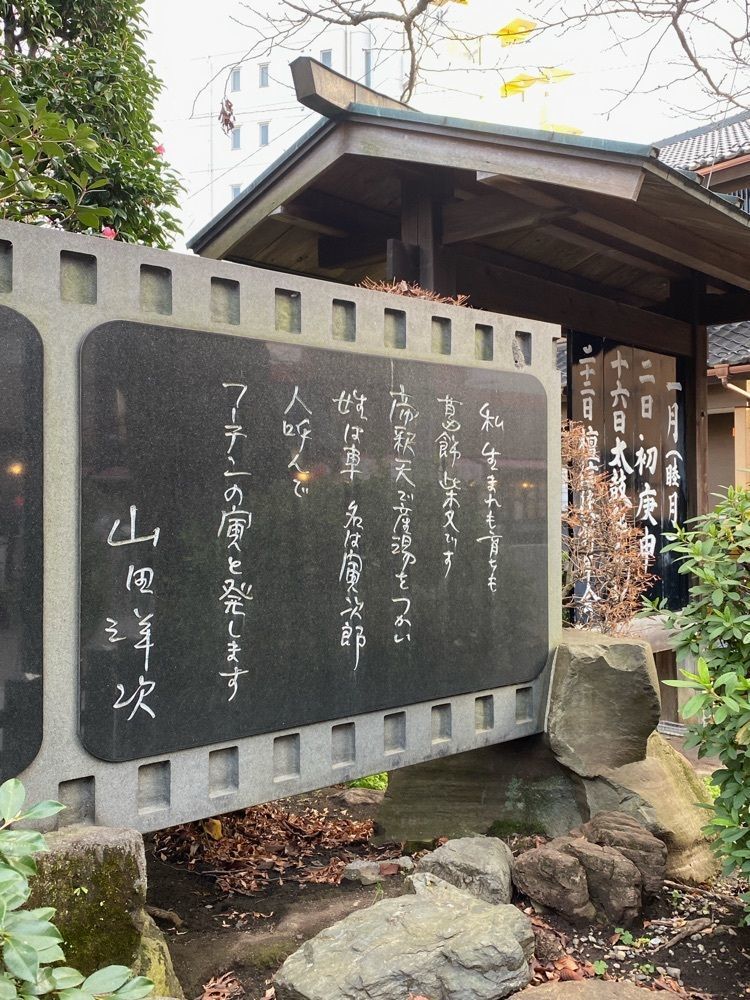 私 生まれも育ちも
葛飾柴又です
帝釈天で産湯をつかい
姓は車 名は寅次郎
人呼んで
フーテンの寅と発します
山田洋次
一月(睦月)
二日 初庚申
十六日 太鼓